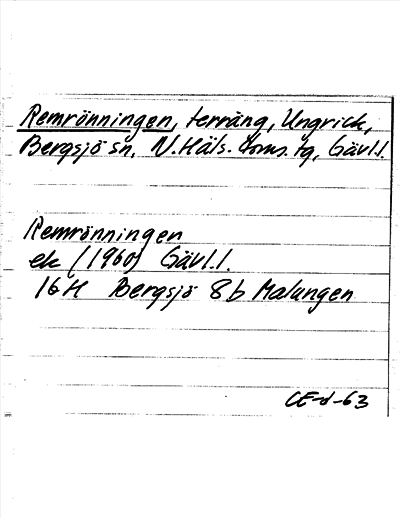 Remrönningen, terräng, Ungrick,
Bergsjö sn, N. Häls. doms. tg, Gävl.l.
Remrönningen
ek (1960) Gävl.l.
16H Bergsjö 8b Malungen
CE-d-63